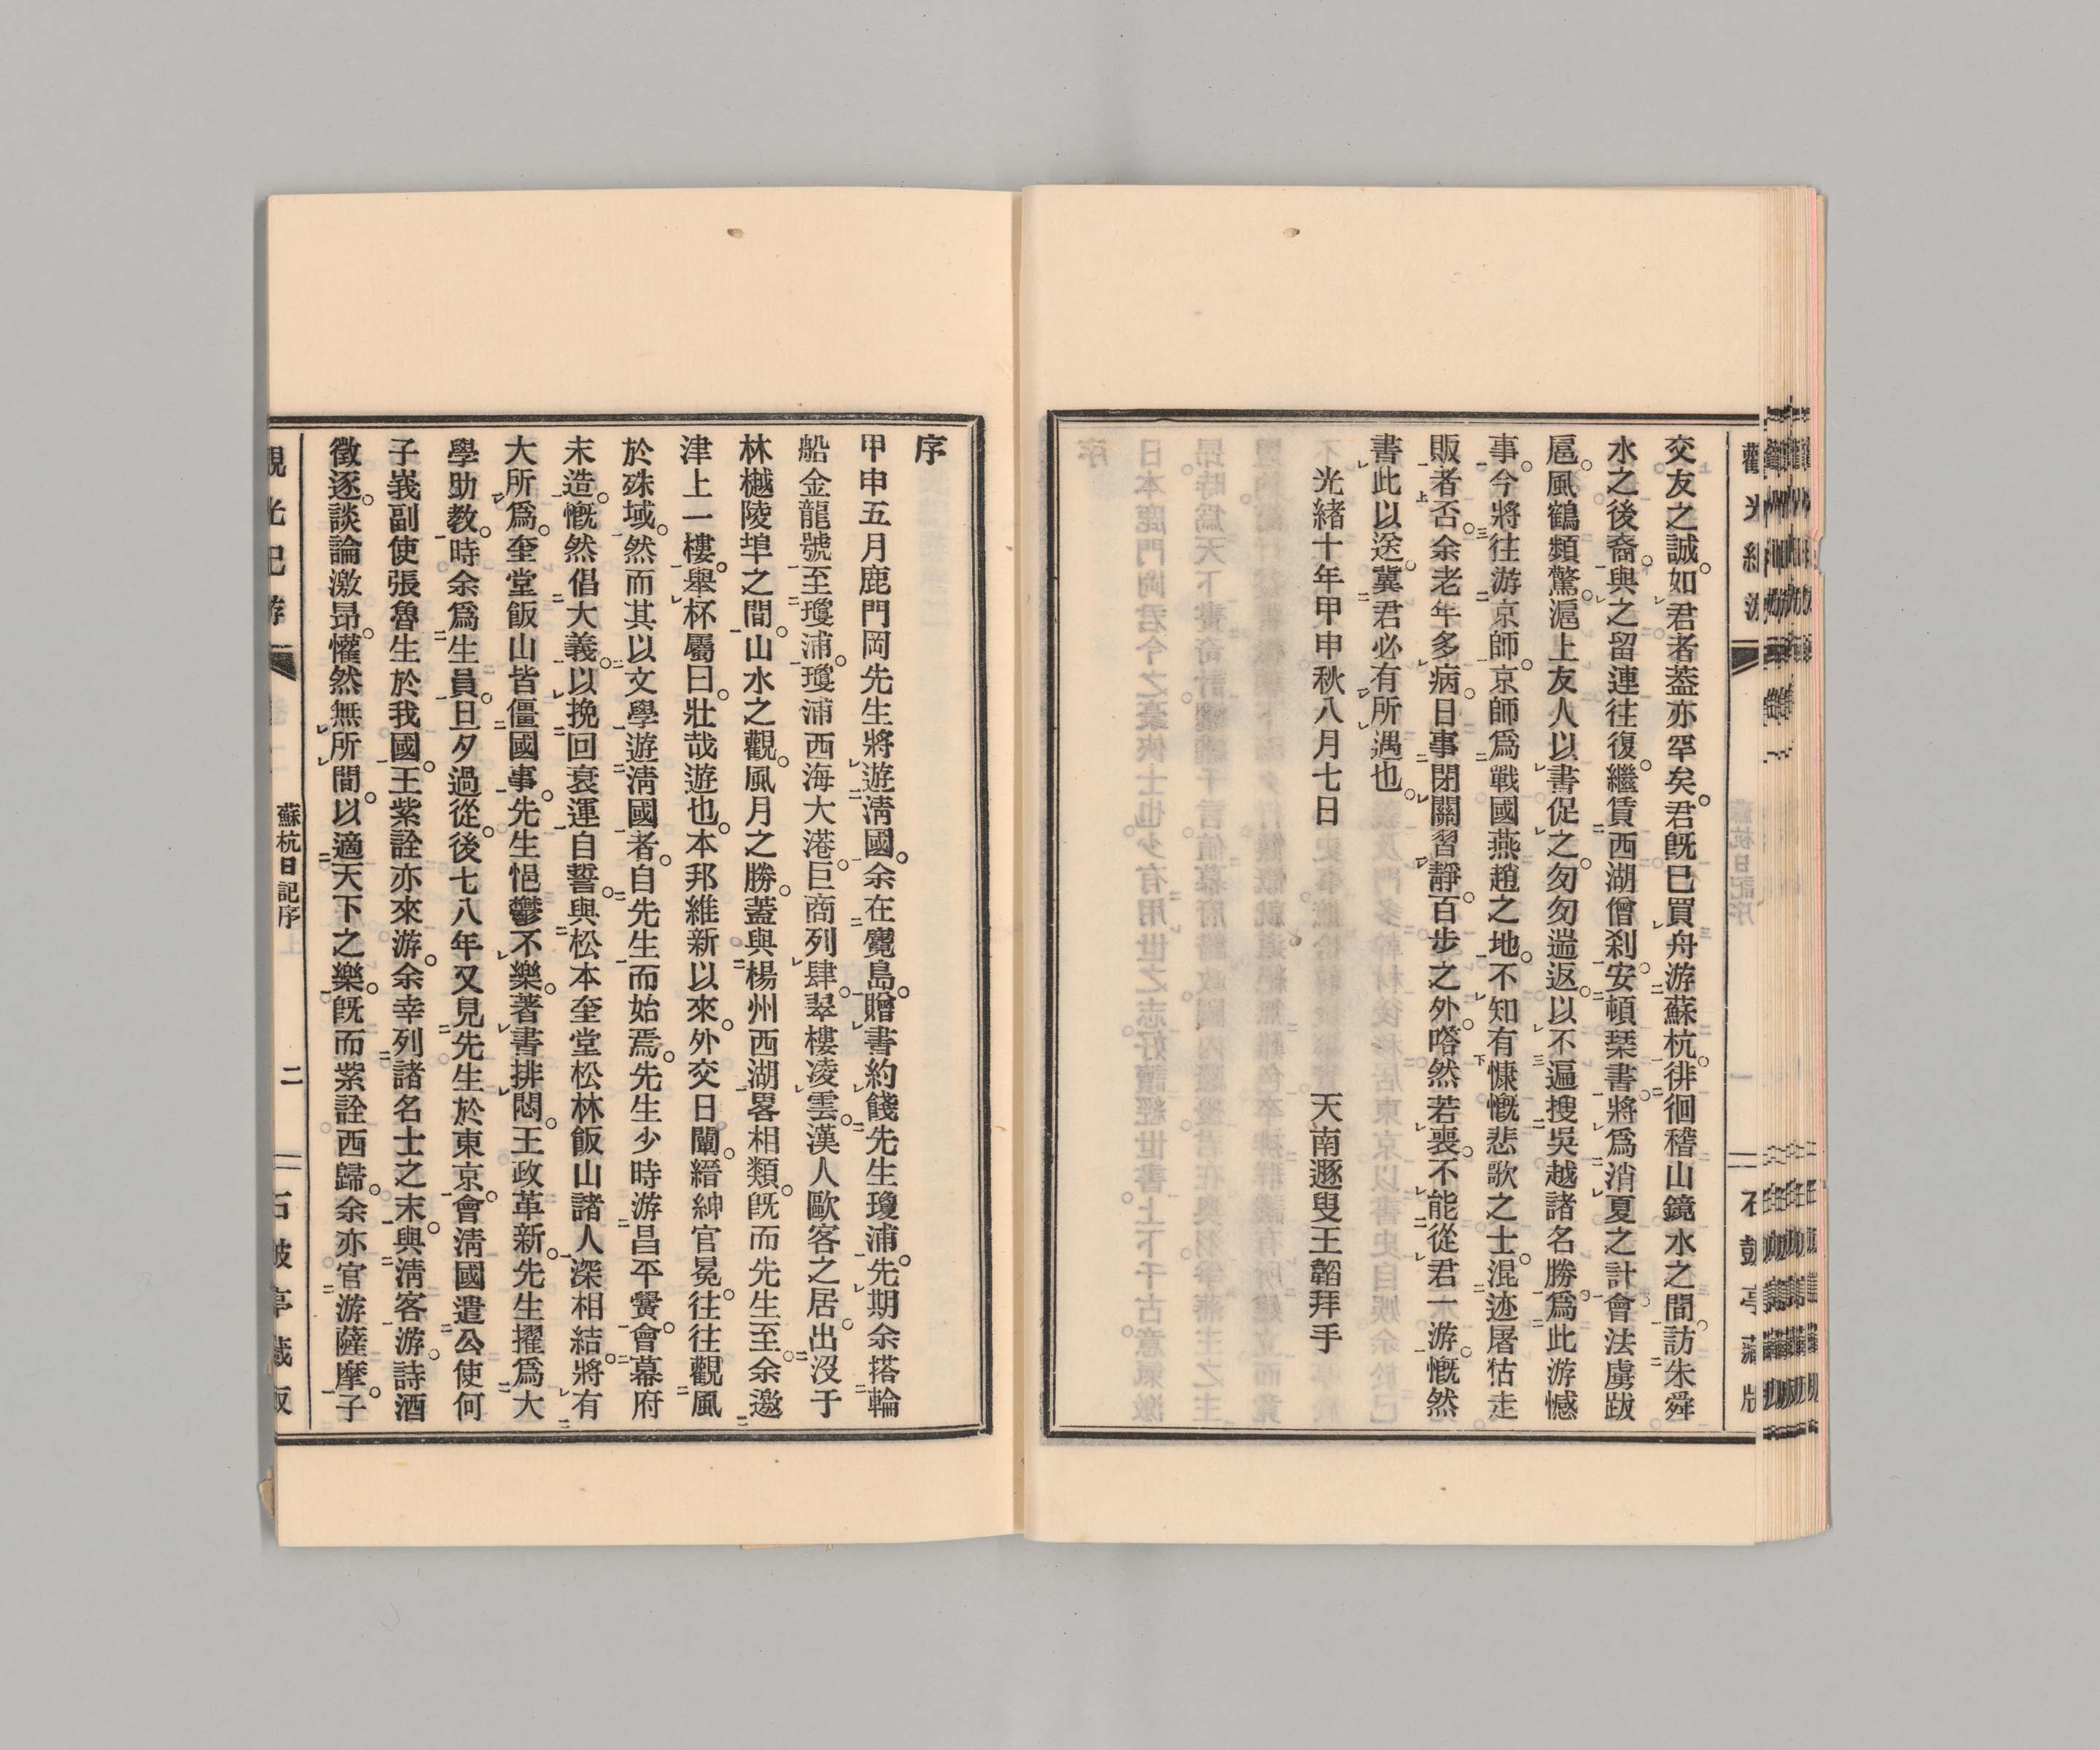 交友之誠。如君者葢亦罕矣。君既已買舟游蘇杭。徘徊稽山鏡水之間。訪朱舜
水之後裔。與之留連往復。繼賃西湖僧刹。安頓琹書。將爲消夏之計會法虜跋
扈。風鶴頻驚。滬上友人以書促之。匆匆遄返。以不遍搜吳越諸名勝。爲此游憾
事。今將往游京師。京師爲戰國燕趙之地。不知有慷慨悲歌之士。混迹屠牯走
販者否。余老年多病。日事閉關習靜。百步之外。嗒然若喪。不能從君一游。慨然
書此以送。冀君必有所遇也。
光緒十年甲申秋八月七日　天南遯叟王韜拜手
石鼓亭藏版
序
甲申五月鹿門岡先生將遊淸國。余在麑島。贈書約餞先生瓊浦。先期余搭輪
船金龍號至瓊浦。瓊浦西海大港。巨商列肆。翠樓凌雲。漢人歐客之居。出沒于
林樾陵埠之間。山水之觀。風月之勝。蓋與楊州西湖畧相類。既而先生至。余邀
津上一樓。舉杯屬曰。壯哉遊也。本邦維新以來。外交日闡。縉紳官冕。往往觀風
於殊域。然而其以文學遊淸國者。自先生而始焉。先生少時游昌平黌。會幕府
末造。慨然倡大義。以挽回衰運自誓。與松本奎堂松林飯山諸人深相結。將有
大所爲。奎堂飯山皆僵國事。先生悒鬱不樂。著書排悶。王政革新。先生擢爲大
學助敎。時余爲生員。旦夕過從。後七八年又見先生於東京。會淸國遣公使何
子峩副使張魯生於我國。王紫詮亦來游。余幸列諸名士之末。與淸客游。詩酒
徵逐。談論激昻。懽然無所間。以適天下之樂。既而紫詮西歸。余亦官游薩摩。子
蘇杭日記序
二